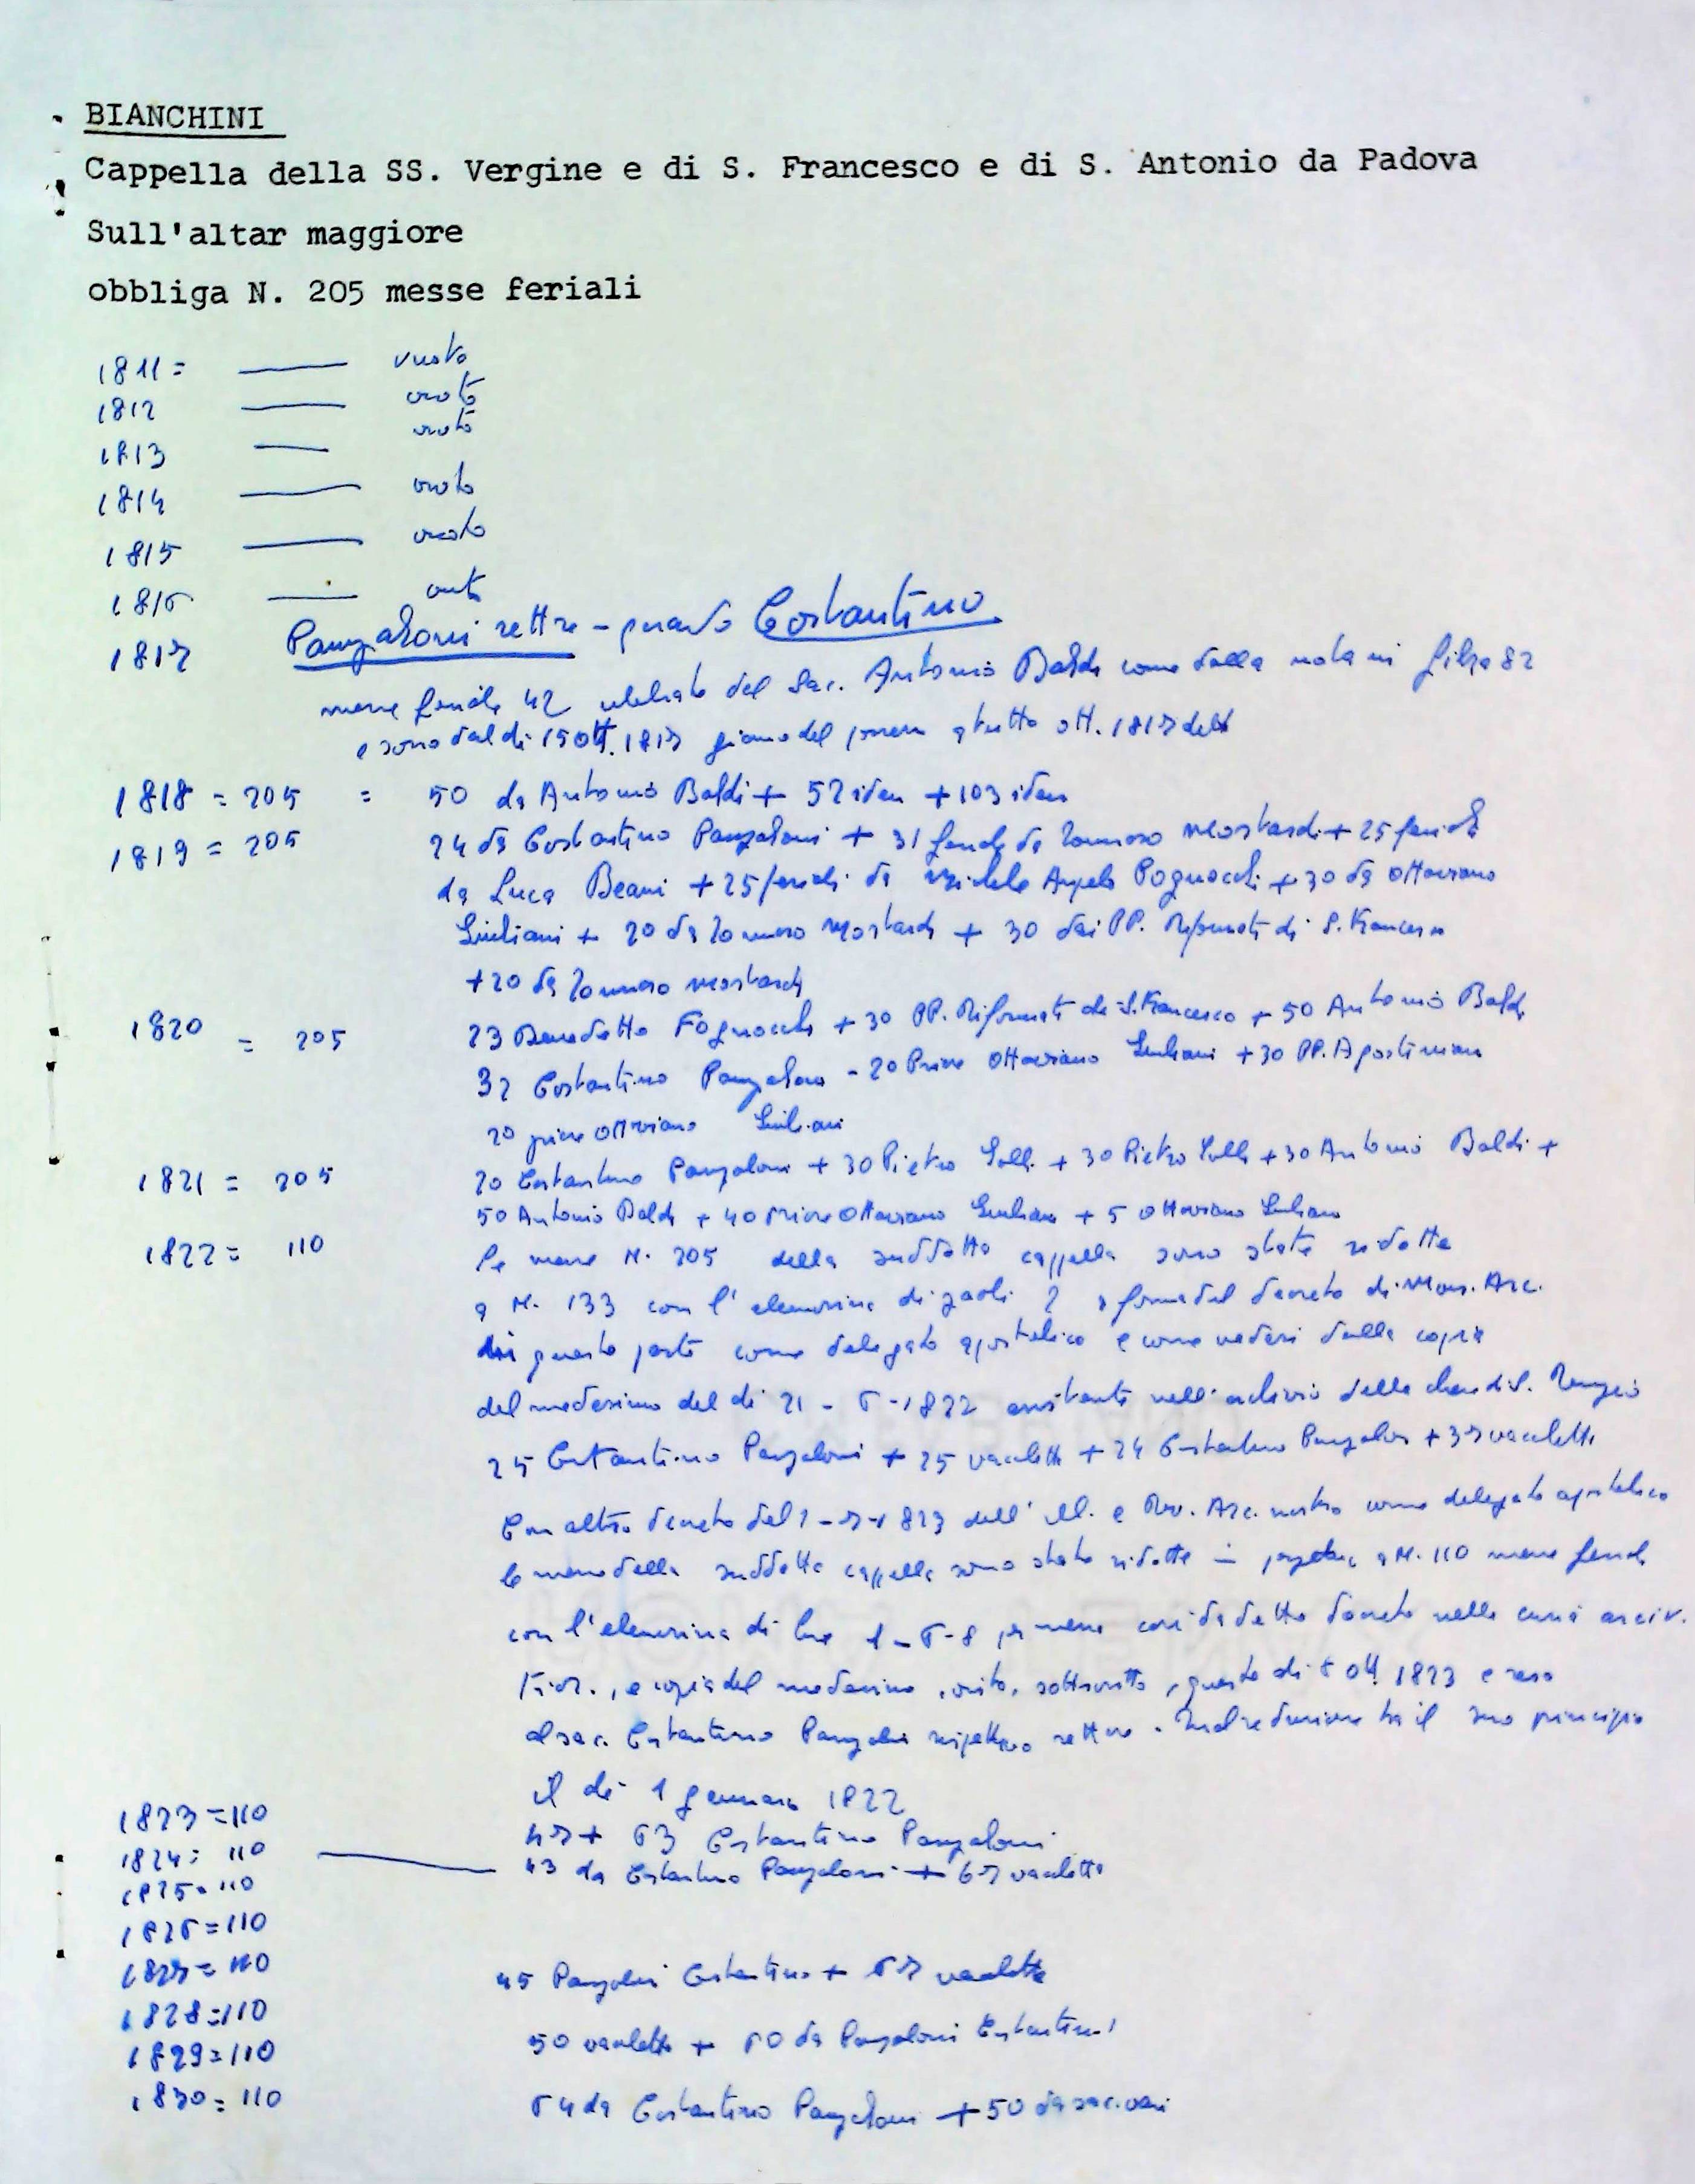 BIANCHINI
Cappella della SS. Vergine e di S. Francesco e di S. Antonio da Padova
Sull'altar maggiore
obbliga N. 205 messe feriali
1811 = —— vuoto
1812 —— vuoto
1813 —— vuoto
1814 —— vuoto
1815 —— vuoto
1816 —— vuoto
1817 Panzaloni rettore - Costantino
messe feriali 42 celebrate del Sac. Antonio Baldi come dalla nota in filza 82
e sono dal di 15 Ott. 1817 giorno del a tutto ott. 1817 detto
1818 = 205 = 50 da Antonio Baldi + 52 idem + 103 idem
1819 = 205 24 da Costantino Panzaloni + 31 feriali da Tommaso Mostardi + 25 feriali
da Luca Beani + 25 feriali da Michele Angelo Pognocchi + 30 da Ottaviano
Giuliani + 20 da Tommaso Mostardi + 30 dai PP. Riformati di S. Francesco
+ 20 da Tommaso Mostardi
1820 = 205 23 Benedetto Fognocchi + 30 PP. Riformati di S. Francesco + 50 Antonio Baldi
32 Costantino Panzaloni - 20 Priore Ottaviano Giuliani + 30 PP. Agostiniani
20 priore Ottaviano Giuliani
1821 = 205 20 Costantino Panzaloni + 30 Pietro Lolli + 30 Pietro Lolli + 30 Antonio Baldi +
50 Antonio Baldi + 40 Priore Ottaviano Giuliani + 5 Ottaviano Giuliani
1822 = 110 Le messe N. 205 della suddetta cappella sono state ridotte
a N. 133 con l'elemosina di paoli 2 a forma del decreto di Mons. Arc.
di questo come delegato apostolico e come vedesi dalla copia
del medesimo del di 21 - 6 - 1822 esistente nell'archivio della chiesa di S. Remigio
25 Costantino Panzaloni + 25 vacchetta + 24 Costantino Panzaloni + 37 vacchetta
Con altro decreto del 2 - 7 - 1823 dell'Ill. e Rev. Arc. nostro come delegato apostolico
le messe della suddetta cappella sono state ridotte in perpetuo a N. 110 messe feriali
con l'elemosina di lire 1 - 6 - 8 per messa così da detto decreto nella curia arciv.
Fior., e copia del medesimo, sottoscritto, questo di 8 ott. 1823 e reso
al sac. Costantino Panzaloni rispettivo rettore. Tal reduzione ha il suo principio
il di 1 gennaio 1822
1823 = 110 47 + 63 Costantino Panzaloni
1824 = 110 —— 43 da Costantino Panzaloni + 67 vacchetta
1825 = 110
1826 = 110
1827 = 110 45 Panzaloni Costantino + 67 vacchetta
1828 = 110
1829 = 110 50 vacchetta + 60 da Panzaloni Costantino
1830 = 110 64 da Costantino Panzaloni + 50 da sac. vari